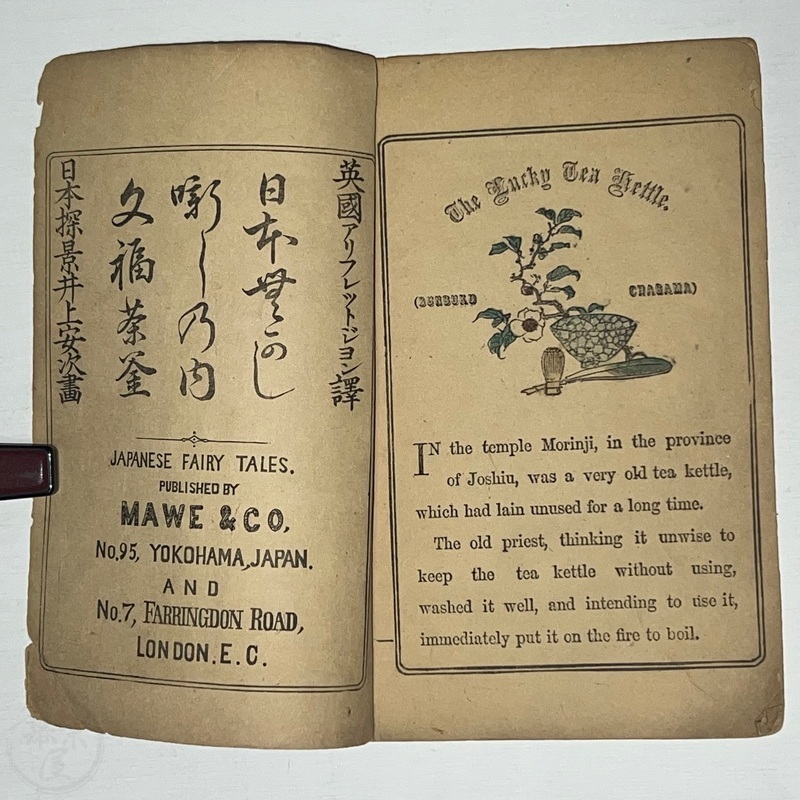 英國アリフレットジヨン譯
日本無かし
噺し乃内
文福茶釜
日本探景井上安次畫
JAPANESE FAIRY TALES.
PUBLISHED BY
MAWE & CO.
No.95, YOKOHAMA, JAPAN.
AND
No.7, FARRINGDON ROAD,
LONDON. E. C.
The Lucky Tea Kettle.
(BUNBUKU CHAGAMA)
IN the temple Morinji, in the province
of Joshiu, was a very old tea kettle,
which had lain unused for a long time.
The old priest, thinking it unwise to
keep the tea kettle without using,
washed it well, and intending to use it,
immediately put it on the fire to boil.